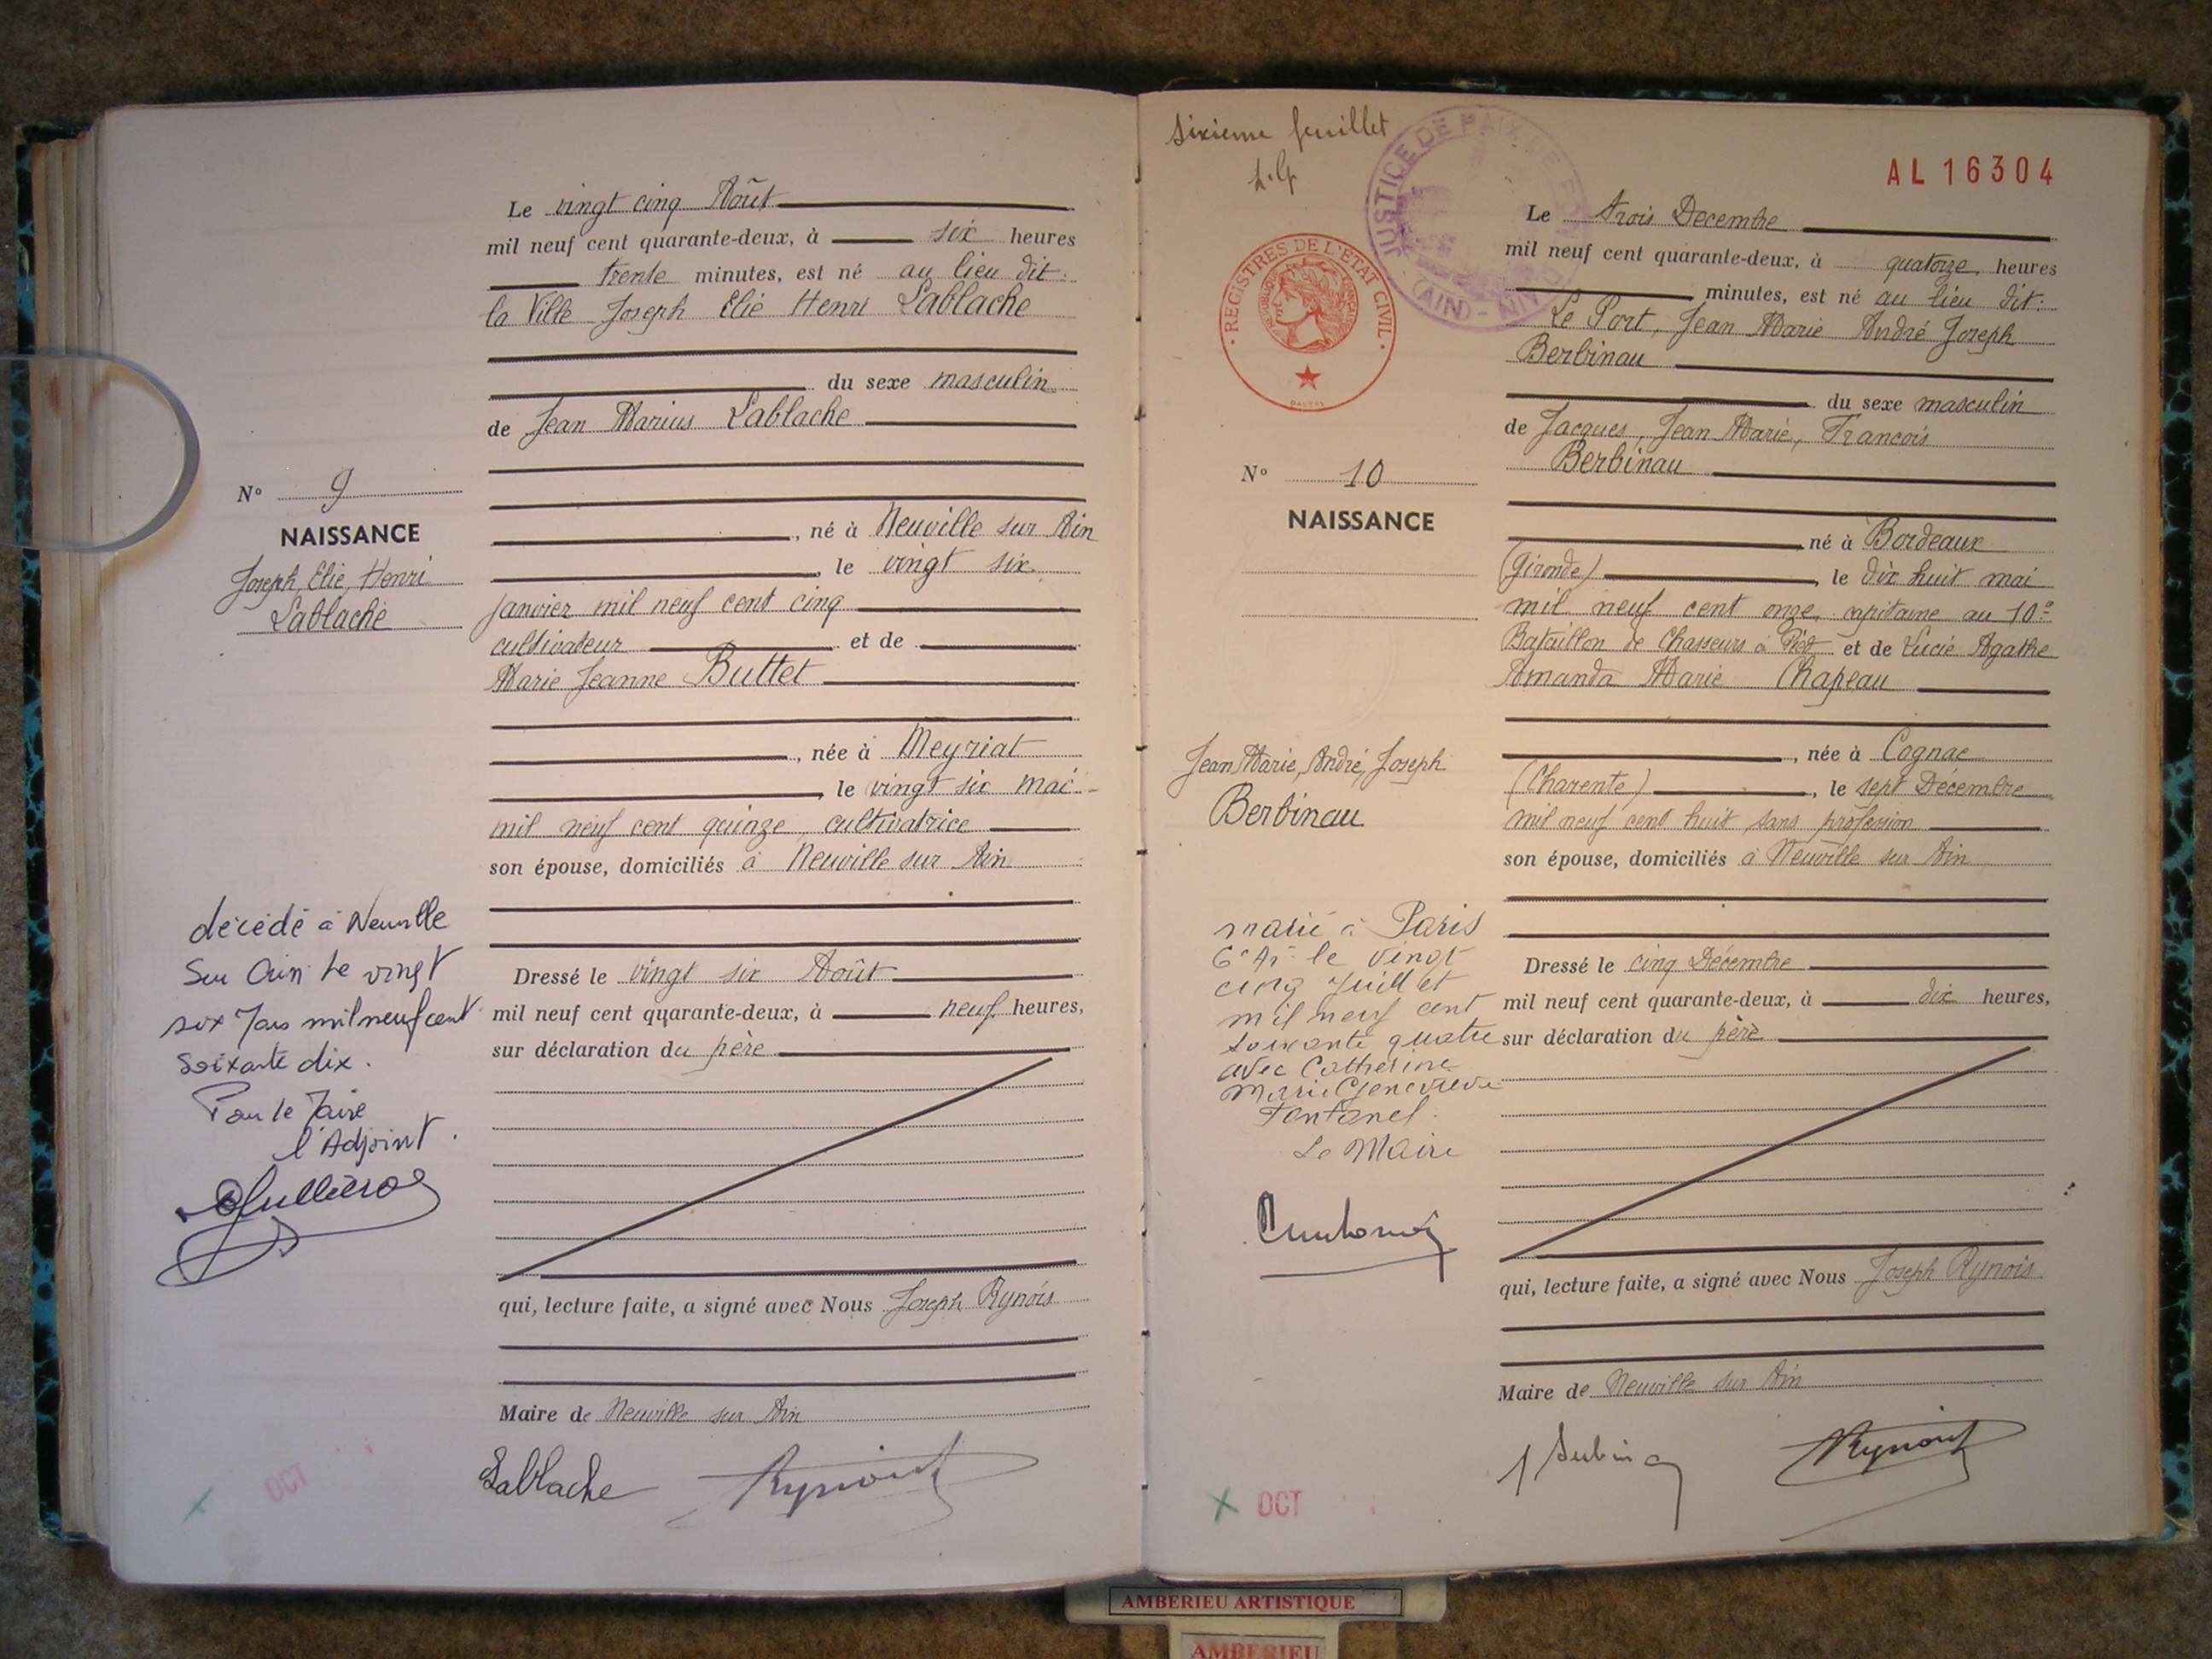 Le vingt cinq Août
mil neuf cent quarante-deux, à six heures
trente minutes, est né au lieu dit:
la Ville Joseph Elie Henri Lablache
du sexe masculin
de Jean Marius Lablache
N° 9
NAISSANCE
Joseph, Elie, Henri
Lablache
, né à Neuville sur Ain
, le vingt six
janvier mil neuf cent cinq
cultivateur et de
Marie Jeanne Buttet
, née à Meyriat
, le vingt six mai
mil neuf cent quinze, cultivatrice
son épouse, domiciliés à Neuville sur Ain
décédé à Neuville
Sur Ain le vingt
six mars mil neuf cent
soixante dix.
Pour le Maire
l'Adjoint.
Dressé le vingt six Août
mil neuf cent quarante-deux, à neuf heures,
sur déclaration du père
qui, lecture faite, a signé avec Nous Joseph Rynois
Maire de Neuville sur Ain
Lablache
OCT
Sixième feuillet
JUSTICE DE PAIX DE
(AIN)
AL 16304
REGISTRES DE L'ETAT CIVIL
Le trois Decembre
mil neuf cent quarante-deux, à quatorze heures
minutes, est né au lieu dit:
Le Port, Jean Marie André Joseph
Berbinau
du sexe masculin
de Jacques, Jean Marie, Francois
Berbinau
N° 10
NAISSANCE
né à Bordeaux
(Gironde) , le dix huit mai
mil neuf cent onze, capitaine au 10e
Bataillon de Chasseurs à Pied et de Lucie Agathe
Amanda Marie Chapeau
, née à Cognac
(Charente) , le sept Décembre
mil neuf cent huit, sans profession
son épouse, domiciliés à Neuville sur Ain
Jean Marie, André, Joseph
Berbinau
marié à Paris
6e Ar le vingt
cinq Juillet
mil neuf cent
soixante quatre
avec Catherine
Marie Genevieve
Fontanel.
Le Maire
Dressé le cinq Décembre
mil neuf cent quarante-deux, à dix heures,
sur déclaration du père
qui, lecture faite, a signé avec Nous Joseph Rynois
Maire de Neuville sur Ain
OCT
AMBERIEU ARTISTIQUE
AMBERIEU